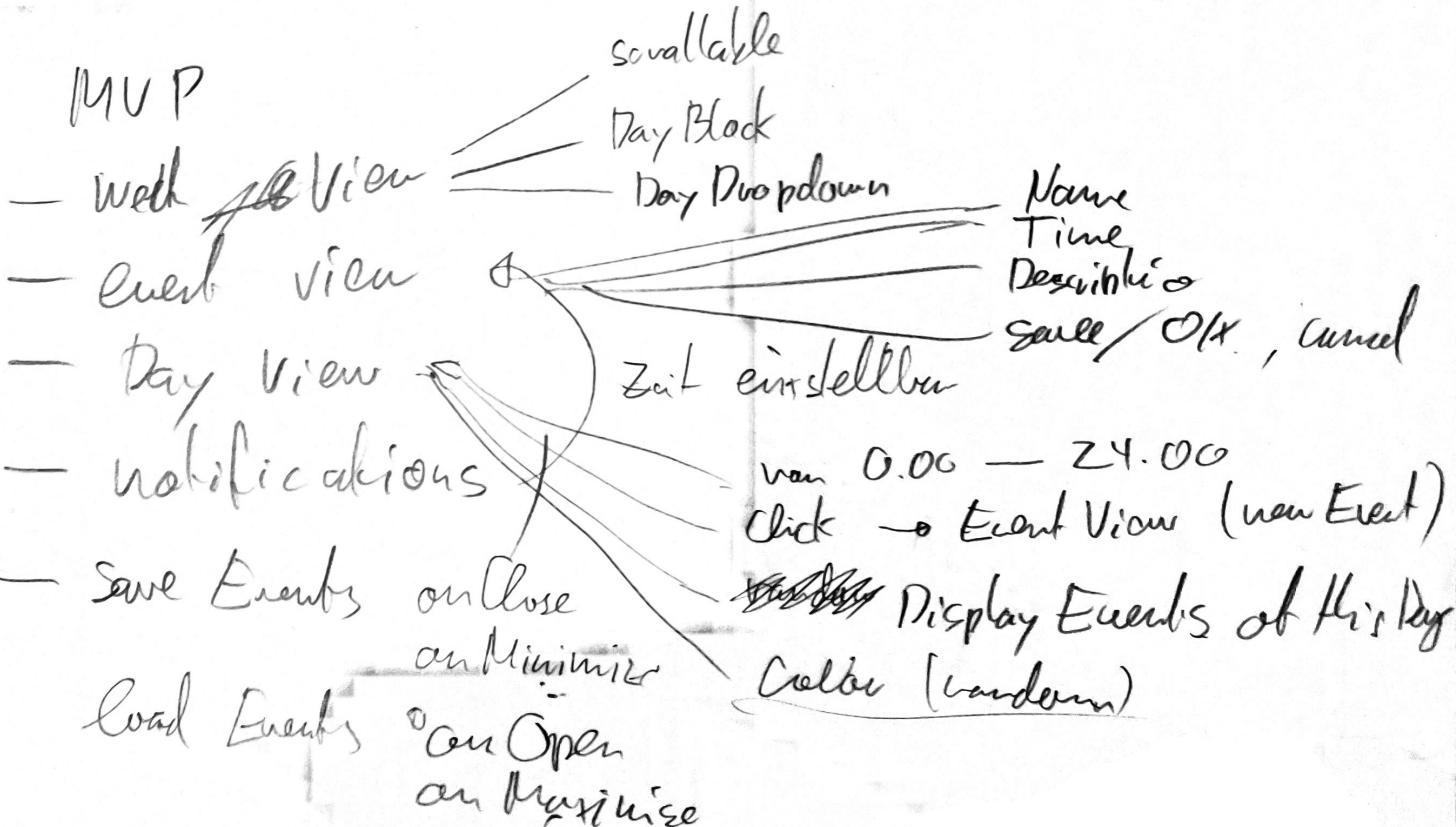 MVP
scrollable
Day Block
Day Dropdown
— Week View
— event view
Name
Time
Descriptio
save / Ok , cancel
— Day View
Zeit einstellbar
von 0.00 — 24.00
Click → Event View (new Event)
Display Events of this Day
Color (random)
— notifications
— Save Events onClose
onMinimize
load Events onOpen
on Maximise